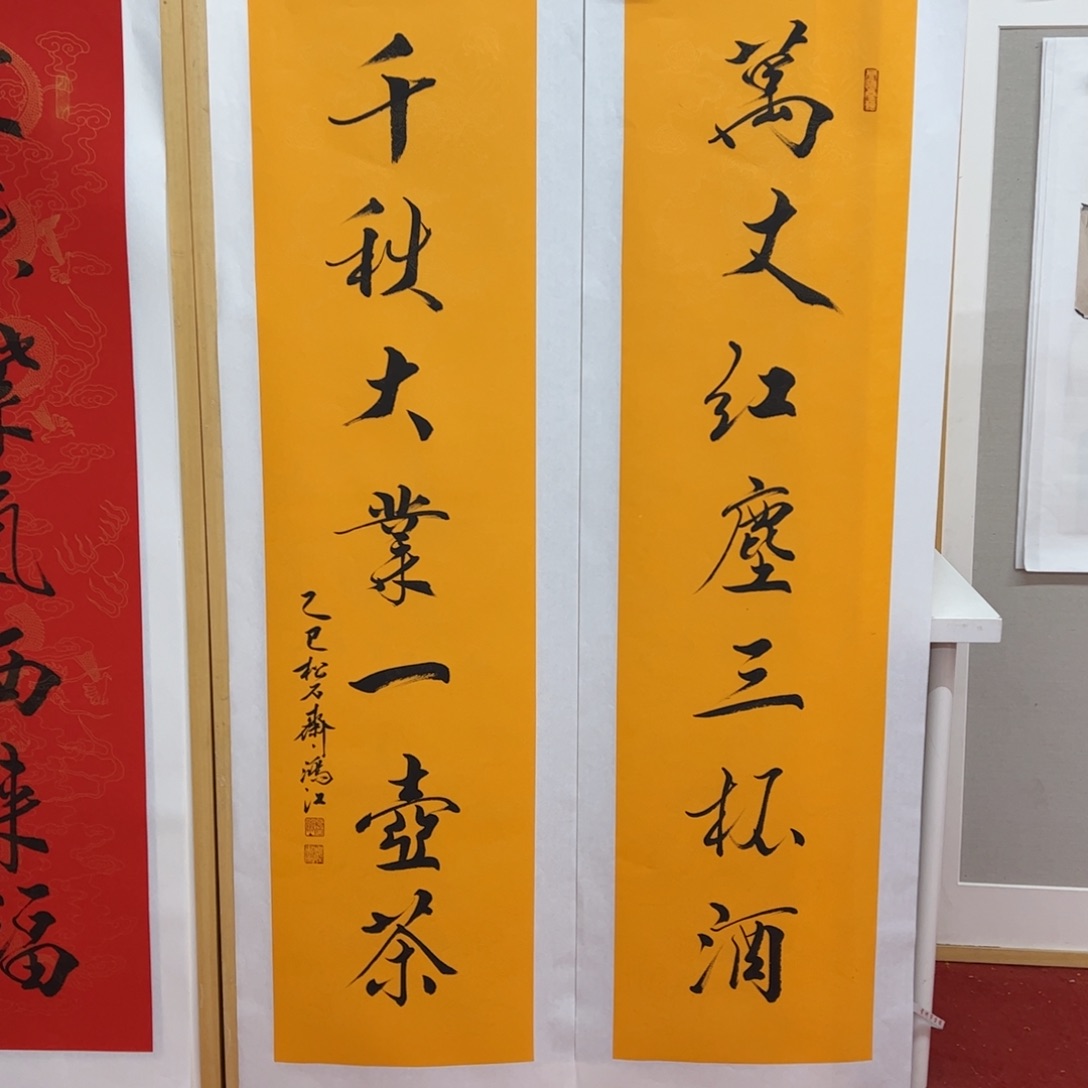 萬丈紅塵三杯酒
千秋大業一壺茶
乙巳松石齋鴻江
氣西來福